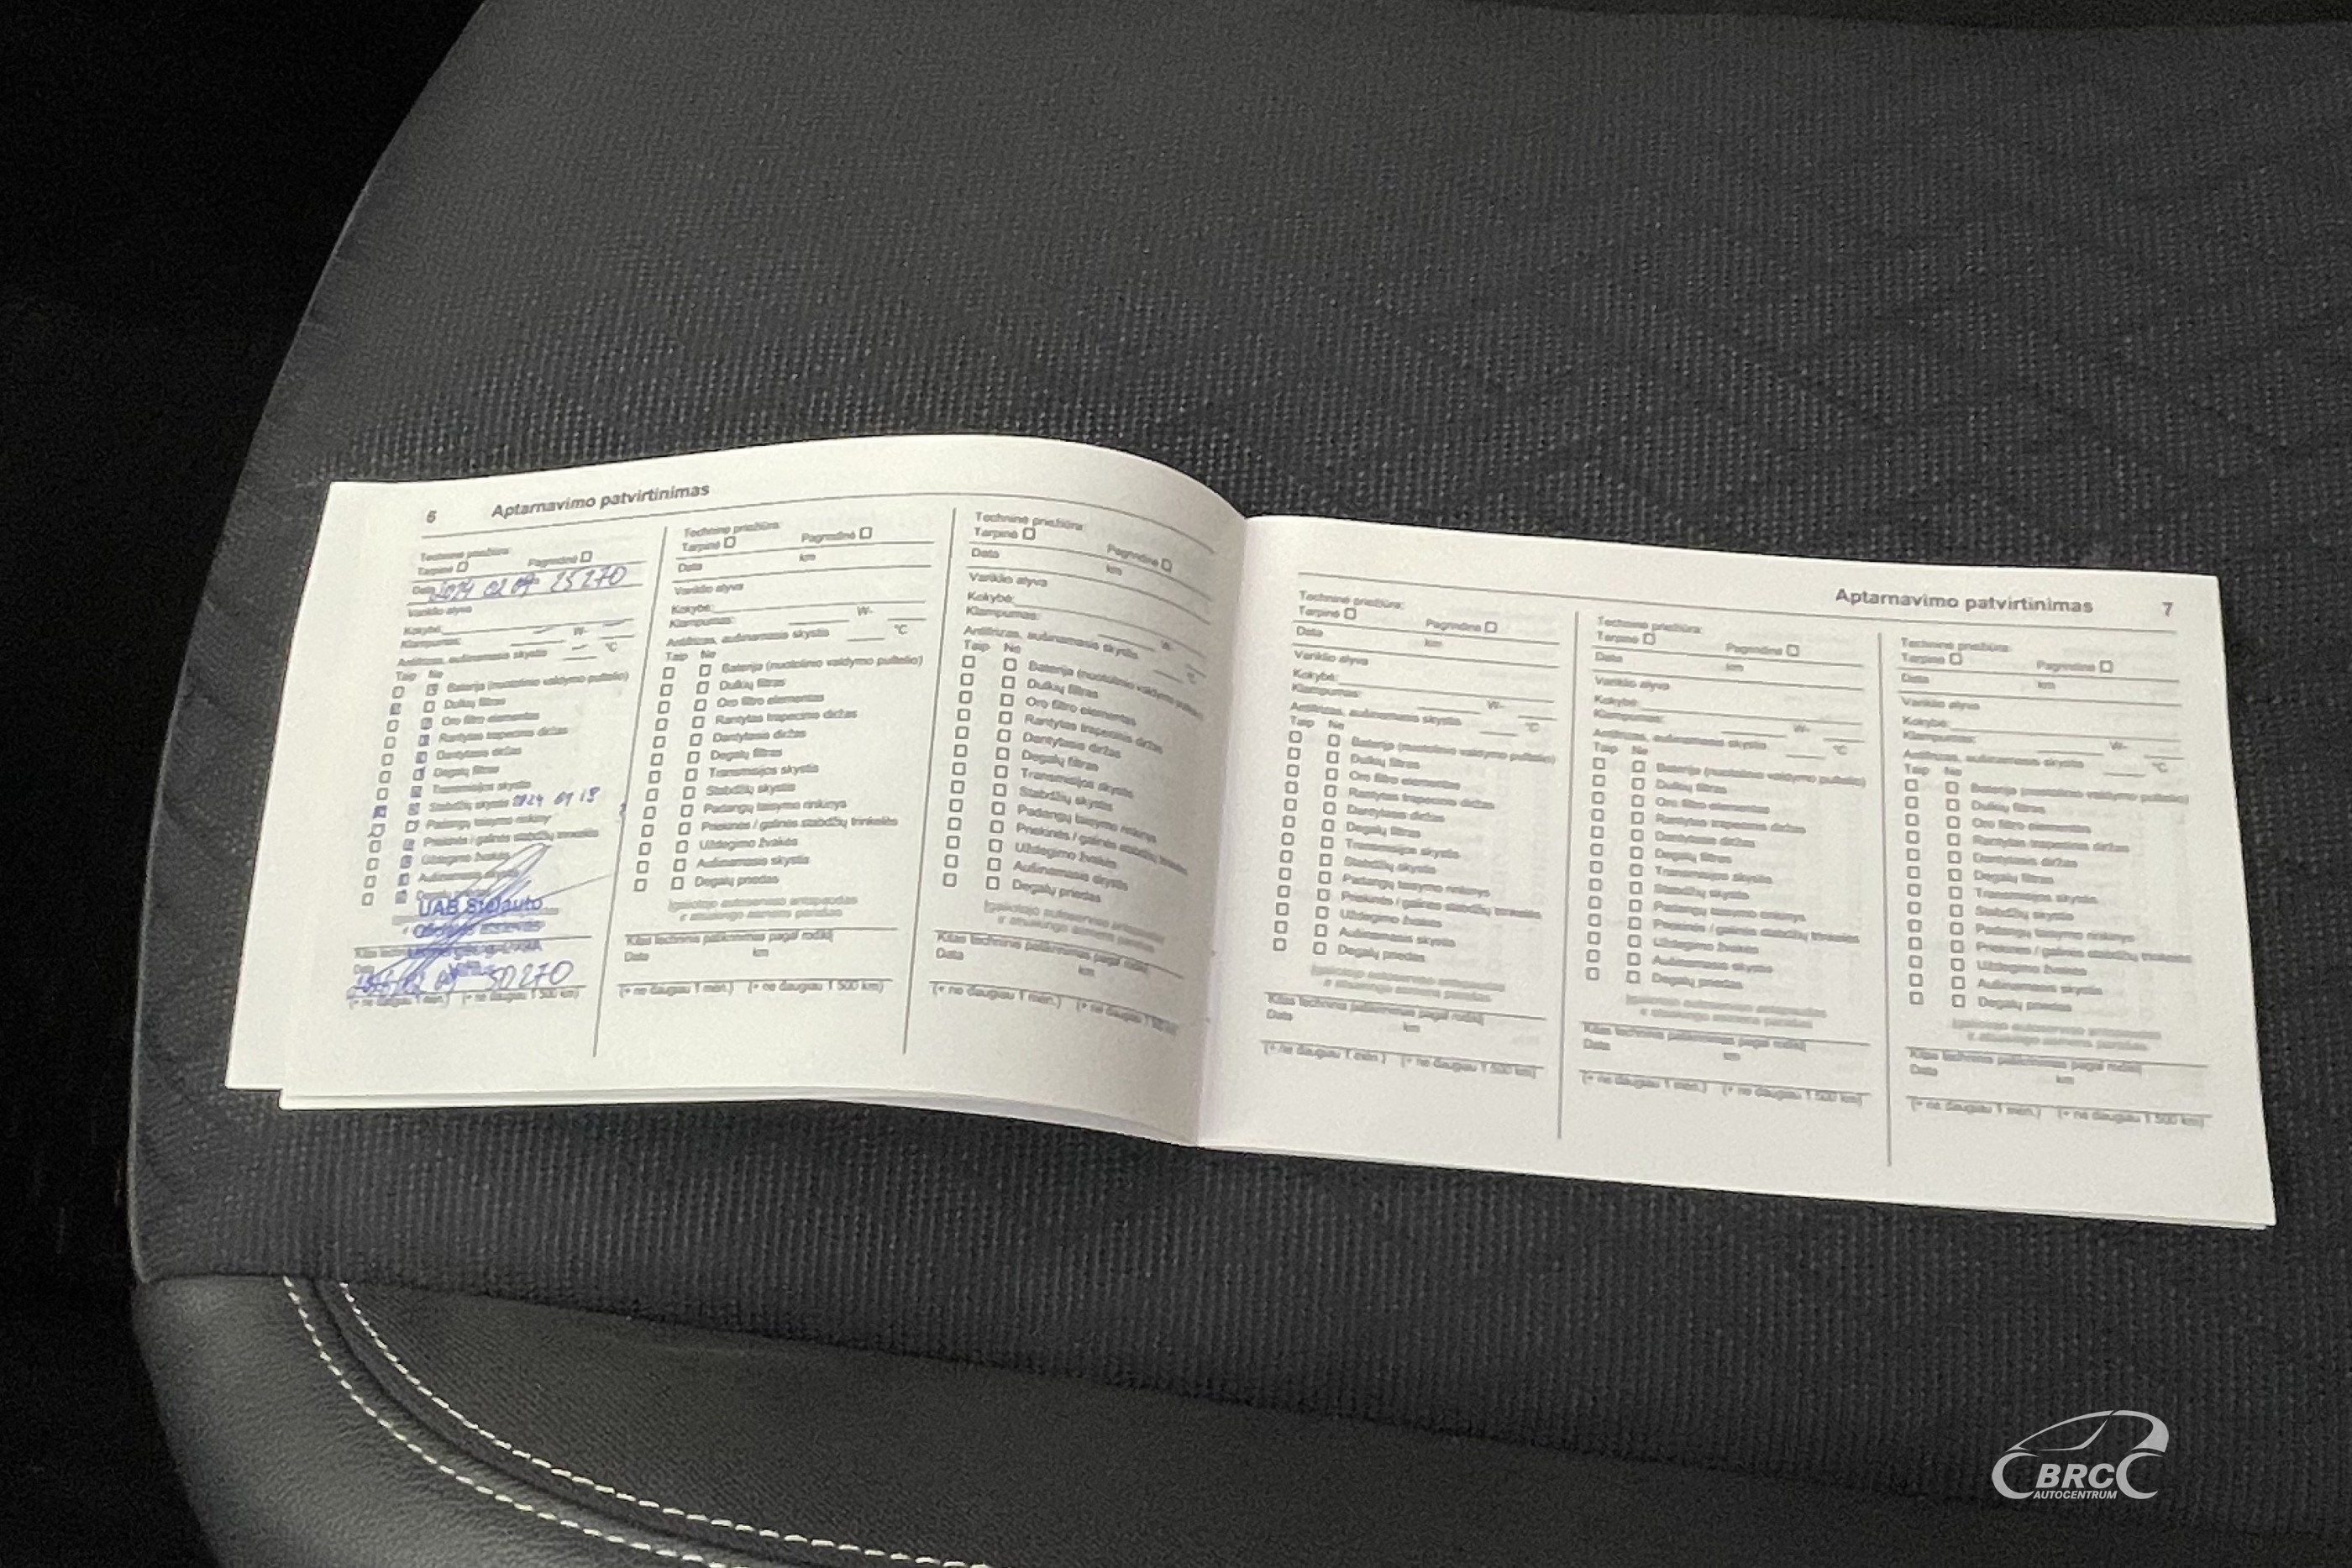 6 Aptarnavimo patvirtinimas
Techninė priežiūra:
Tarpinė Pagrindinė
Data 2024 02 09 25270
Variklio alyva
Kokybė:
Klampumas: W-
Antifrizas, aušinamasis skystis °C
Taip Ne
Baterija (nuotolinio valdymo pultelio)
Dulkių filtras
Oro filtro elementas
Rantytas trapecinis diržas
Dantytasis diržas
Degalų filtras
Transmisijos skystis
Stabdžių skystis 2024 09 18
Padangų taisymo rinkinys
Priekinės / galinės stabdžių trinkelės
Uždegimo žvakės
Aušinamasis skystis
Degalų priedas
UAB Stelauto
Kitas techninis
Data
02 09 50270
(+ ne daugiau 1 mėn.) (+ ne daugiau 1 500 km)
Techninė priežiūra:
Tarpinė Pagrindinė
Data km
Variklio alyva
Kokybė:
Klampumas: W-
Antifrizas, aušinamasis skystis °C
Taip Ne
Baterija (nuotolinio valdymo pultelio)
Dulkių filtras
Oro filtro elementas
Rantytas trapecinis diržas
Dantytasis diržas
Degalų filtras
Transmisijos skystis
Stabdžių skystis
Padangų taisymo rinkinys
Priekinės / galinės stabdžių trinkelės
Uždegimo žvakės
Aušinamasis skystis
Degalų priedas
Įgaliotojo autoserviso antspaudas
ir atsakingo asmens parašas
Kitas techninis patikrinimas pagal rodiklį
Data km
(+ ne daugiau 1 mėn.) (+ ne daugiau 1 500 km)
Techninė priežiūra:
Tarpinė Pagrindinė
Data km
Variklio alyva
Kokybė:
Klampumas: W-
Antifrizas, aušinamasis skystis °C
Taip Ne
Baterija (nuotolinio valdymo
Dulkių filtras
Oro filtro elementas
Rantytas trapecinis diržas
Dantytasis diržas
Degalų filtras
Transmisijos skystis
Stabdžių skystis
Padangų taisymo rinkinys
Priekinės / galinės stabdžių trinkelės
Uždegimo žvakės
Aušinamasis skystis
Degalų priedas
Įgaliotojo autoserviso antspaudas
ir atsakingo asmens parašas
Kitas techninis patikrinimas pagal rodiklį
Data km
(+ ne daugiau 1 mėn.) (+ ne daugiau 1 500 km)
Aptarnavimo patvirtinimas 7
Techninė priežiūra:
Tarpinė Pagrindinė
Data km
Variklio alyva
Kokybė:
Klampumas: W-
Antifrizas, aušinamasis skystis °C
Taip Ne
Baterija (nuotolinio valdymo pultelio)
Dulkių filtras
Oro filtro elementas
Rantytas trapecinis diržas
Dantytasis diržas
Degalų filtras
Transmisijos skystis
Stabdžių skystis
Padangų taisymo rinkinys
Priekinės / galinės stabdžių trinkelės
Uždegimo žvakės
Aušinamasis skystis
Degalų priedas
Įgaliotojo autoserviso antspaudas
ir atsakingo asmens parašas
Kitas techninis patikrinimas pagal rodiklį
Data km
(+ ne daugiau 1 mėn.) (+ ne daugiau 1 500 km)
Techninė priežiūra:
Tarpinė Pagrindinė
Data km
Variklio alyva
Kokybė:
Klampumas: W-
Antifrizas, aušinamasis skystis °C
Taip Ne
Baterija (nuotolinio valdymo pultelio)
Dulkių filtras
Oro filtro elementas
Rantytas trapecinis diržas
Dantytasis diržas
Degalų filtras
Transmisijos skystis
Stabdžių skystis
Padangų taisymo rinkinys
Priekinės / galinės stabdžių trinkelės
Uždegimo žvakės
Aušinamasis skystis
Degalų priedas
Įgaliotojo autoserviso antspaudas
ir atsakingo asmens parašas
Kitas techninis patikrinimas pagal rodiklį
Data km
(+ ne daugiau 1 mėn.) (+ ne daugiau 1 500 km)
Techninė priežiūra:
Tarpinė Pagrindinė
Data km
Variklio alyva
Kokybė:
Klampumas: W-
Antifrizas, aušinamasis skystis °C
Taip Ne
Baterija (nuotolinio valdymo pultelio)
Dulkių filtras
Oro filtro elementas
Rantytas trapecinis diržas
Dantytasis diržas
Degalų filtras
Transmisijos skystis
Stabdžių skystis
Padangų taisymo rinkinys
Priekinės / galinės stabdžių trinkelės
Uždegimo žvakės
Aušinamasis skystis
Degalų priedas
Įgaliotojo autoserviso antspaudas
ir atsakingo asmens parašas
Kitas techninis patikrinimas pagal rodiklį
Data km
(+ ne daugiau 1 mėn.) (+ ne daugiau 1 500 km)
BRC
AUTOCENTRUM